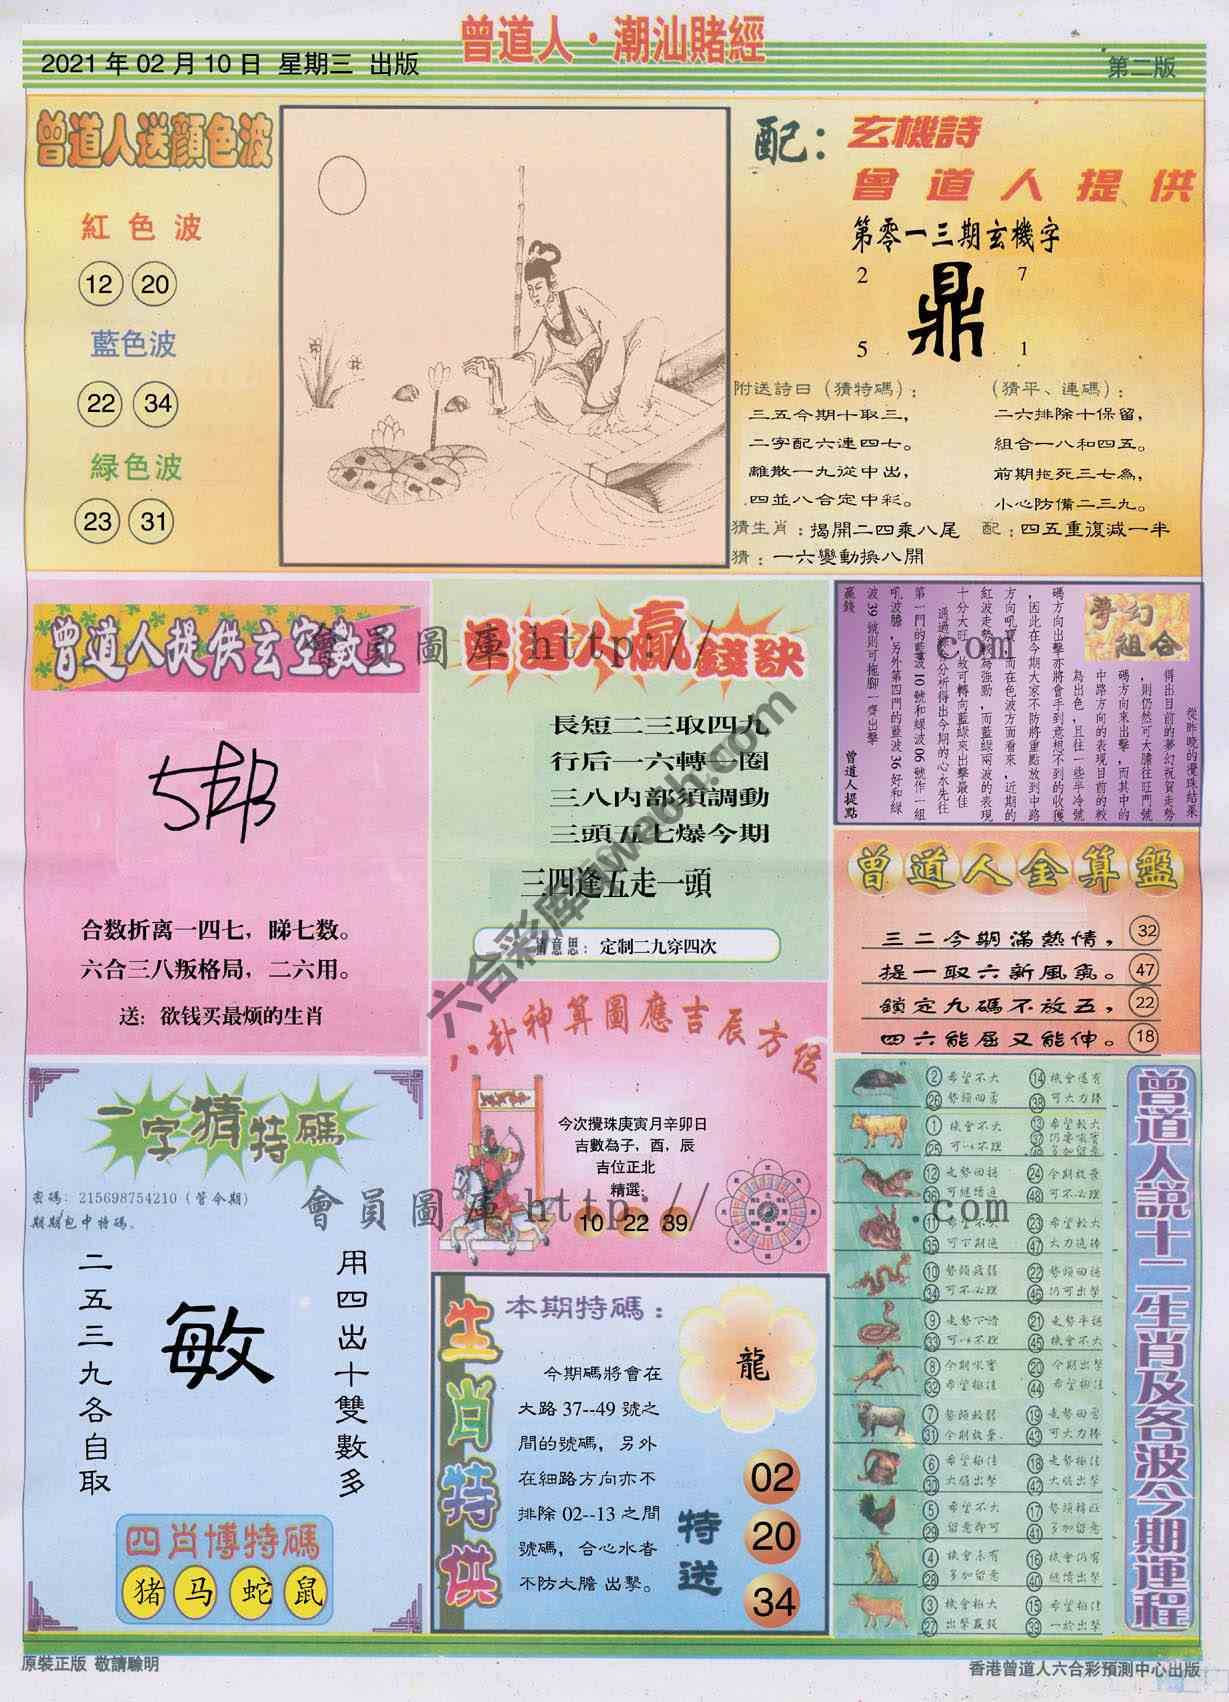 曾道人·潮汕賭經
2021年02月10日 星期三 出版
第二版
曾道人送顏色波
紅色波
12 20
藍色波
22 34
緑色波
23 31
配：玄機詩
曾道人提供
第零一三期玄機字
2 7
鼎
5 1
附送詩曰（猜特碼）：
三五今期十取三，
二字配六連四七。
離散一九從中出，
四並八合定中彩。
（猜平、連碼）：
二六排除十保留，
組合一八和四五。
前期拖死三七為，
小心防備二三九。
猜生肖：揭開二四乘八尾
配：四五重復減一半
猜：一六變動換八開
曾道人提供玄空數
合数折离一四七，睇七数。
六合三八叛格局，二六用。
送：欲钱买最烦的生肖
曾道人贏錢訣
長短二三取四九
行后一六轉一圈
三八内部須調動
三頭五七爆今期
三四逢五走一頭
猜意思：定制二九穿四次
夢幻組合
從昨晚的攪珠結果
得出目前的夢幻祝賀走勢
，則仍然可大膽往旺門號
碼方向來出擊，而其中的
中路方向的表現目前的較
為出色，且往一些半冷號
碼方向出擊亦將會手到意想不到的收獲
，因此在今期大家不防將重點放到中路
方向吼寶，而在色波方面看來，近期的
紅波走勢較為強勁，而藍綠兩波的表現
十分大旺，故可轉向藍綠來出擊最佳
第一門的藍波10號和綠波06號作一組
吼波膽，另外第四門的藍波36好和綠
波39號則可拖腳一齊出擊
贏錢
曾道人提點
曾道人金算盤
三二今期滿熱情， 32
提一取六新風氣。 47
鎖定九碼不放五， 22
四六能屈又能伸。 18
八卦神算圖應吉辰方位
今次攪珠庚寅月辛卯日
吉數為子，酉，辰
吉位正北
精選：
10 22 39
一字猜特碼
密碼：215698754210（管令期）
期期包中特碼。
用四出十雙數多
敏
二五三九各自取
四肖博特碼
猪 马 蛇 鼠
生肖特供
本期特碼：
今期碼將會在
大路37--49號之
間的號碼，另外
在細路方向亦不
排除02--13之間
號碼，合心水者
不防大膽 出擊。
龍
特送
02
20
34
曾道人説十二生肖及各波今期運程
2 希望不大 14 機會還有
26 38 可大力捧
1 機會不大 13 希望較大
25 可以不理
24 今期放棄
36 48 可不必理
11 希望不大 23 希望較大
35 47
10 22
34 可不必理 46 仍可出擊
9 21
33 可以不理 45 機會不大
8 20 今期出擊
32 希望極佳 44 希望極佳
7 19
31 今期放棄 43 可大力捧
6 希望極佳 18 走勢極佳
30 大膽出擊 42 大膽出擊
5 希望不大 17
29 留意即可 41 多加留意
4 16 機會仍有
28 多加留意 40
3 機會極大 15 希望極佳
27 出擊贏錢 39
會員圖庫 http://
com
會員圖庫 http://
.com
原裝正版 敬請驗明
香港曾道人六合彩預測中心出版